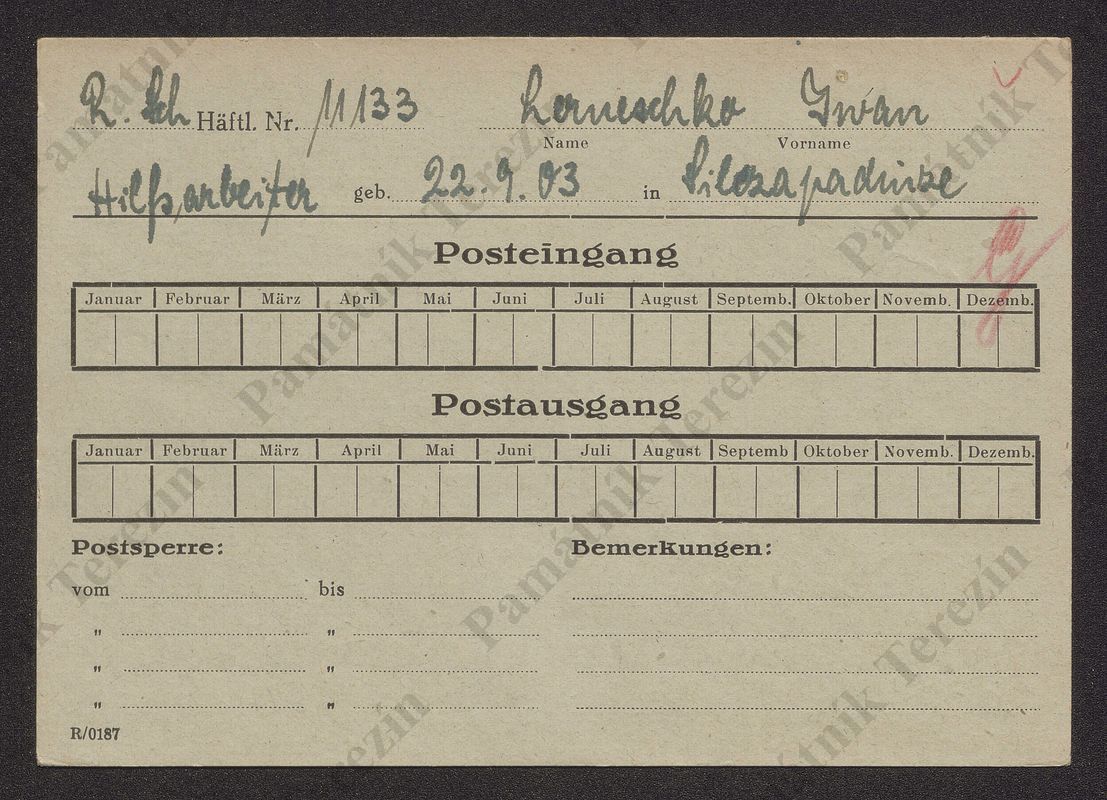 R. Sch Häftl. Nr. 11133 Leruschko Iwan
Name Vorname
Hilfsarbeiter geb. 22.9.03 in
Posteingang
Januar Februar März April Mai Juni Juli August Septemb. Oktober Novemb. Dezemb.
Postausgang
Januar Februar März April Mai Juni Juli August Septemb Oktober Novemb. Dezemb.
Postsperre: Bemerkungen:
vom bis
" "
" "
" "
R/0187
Památník Terezín